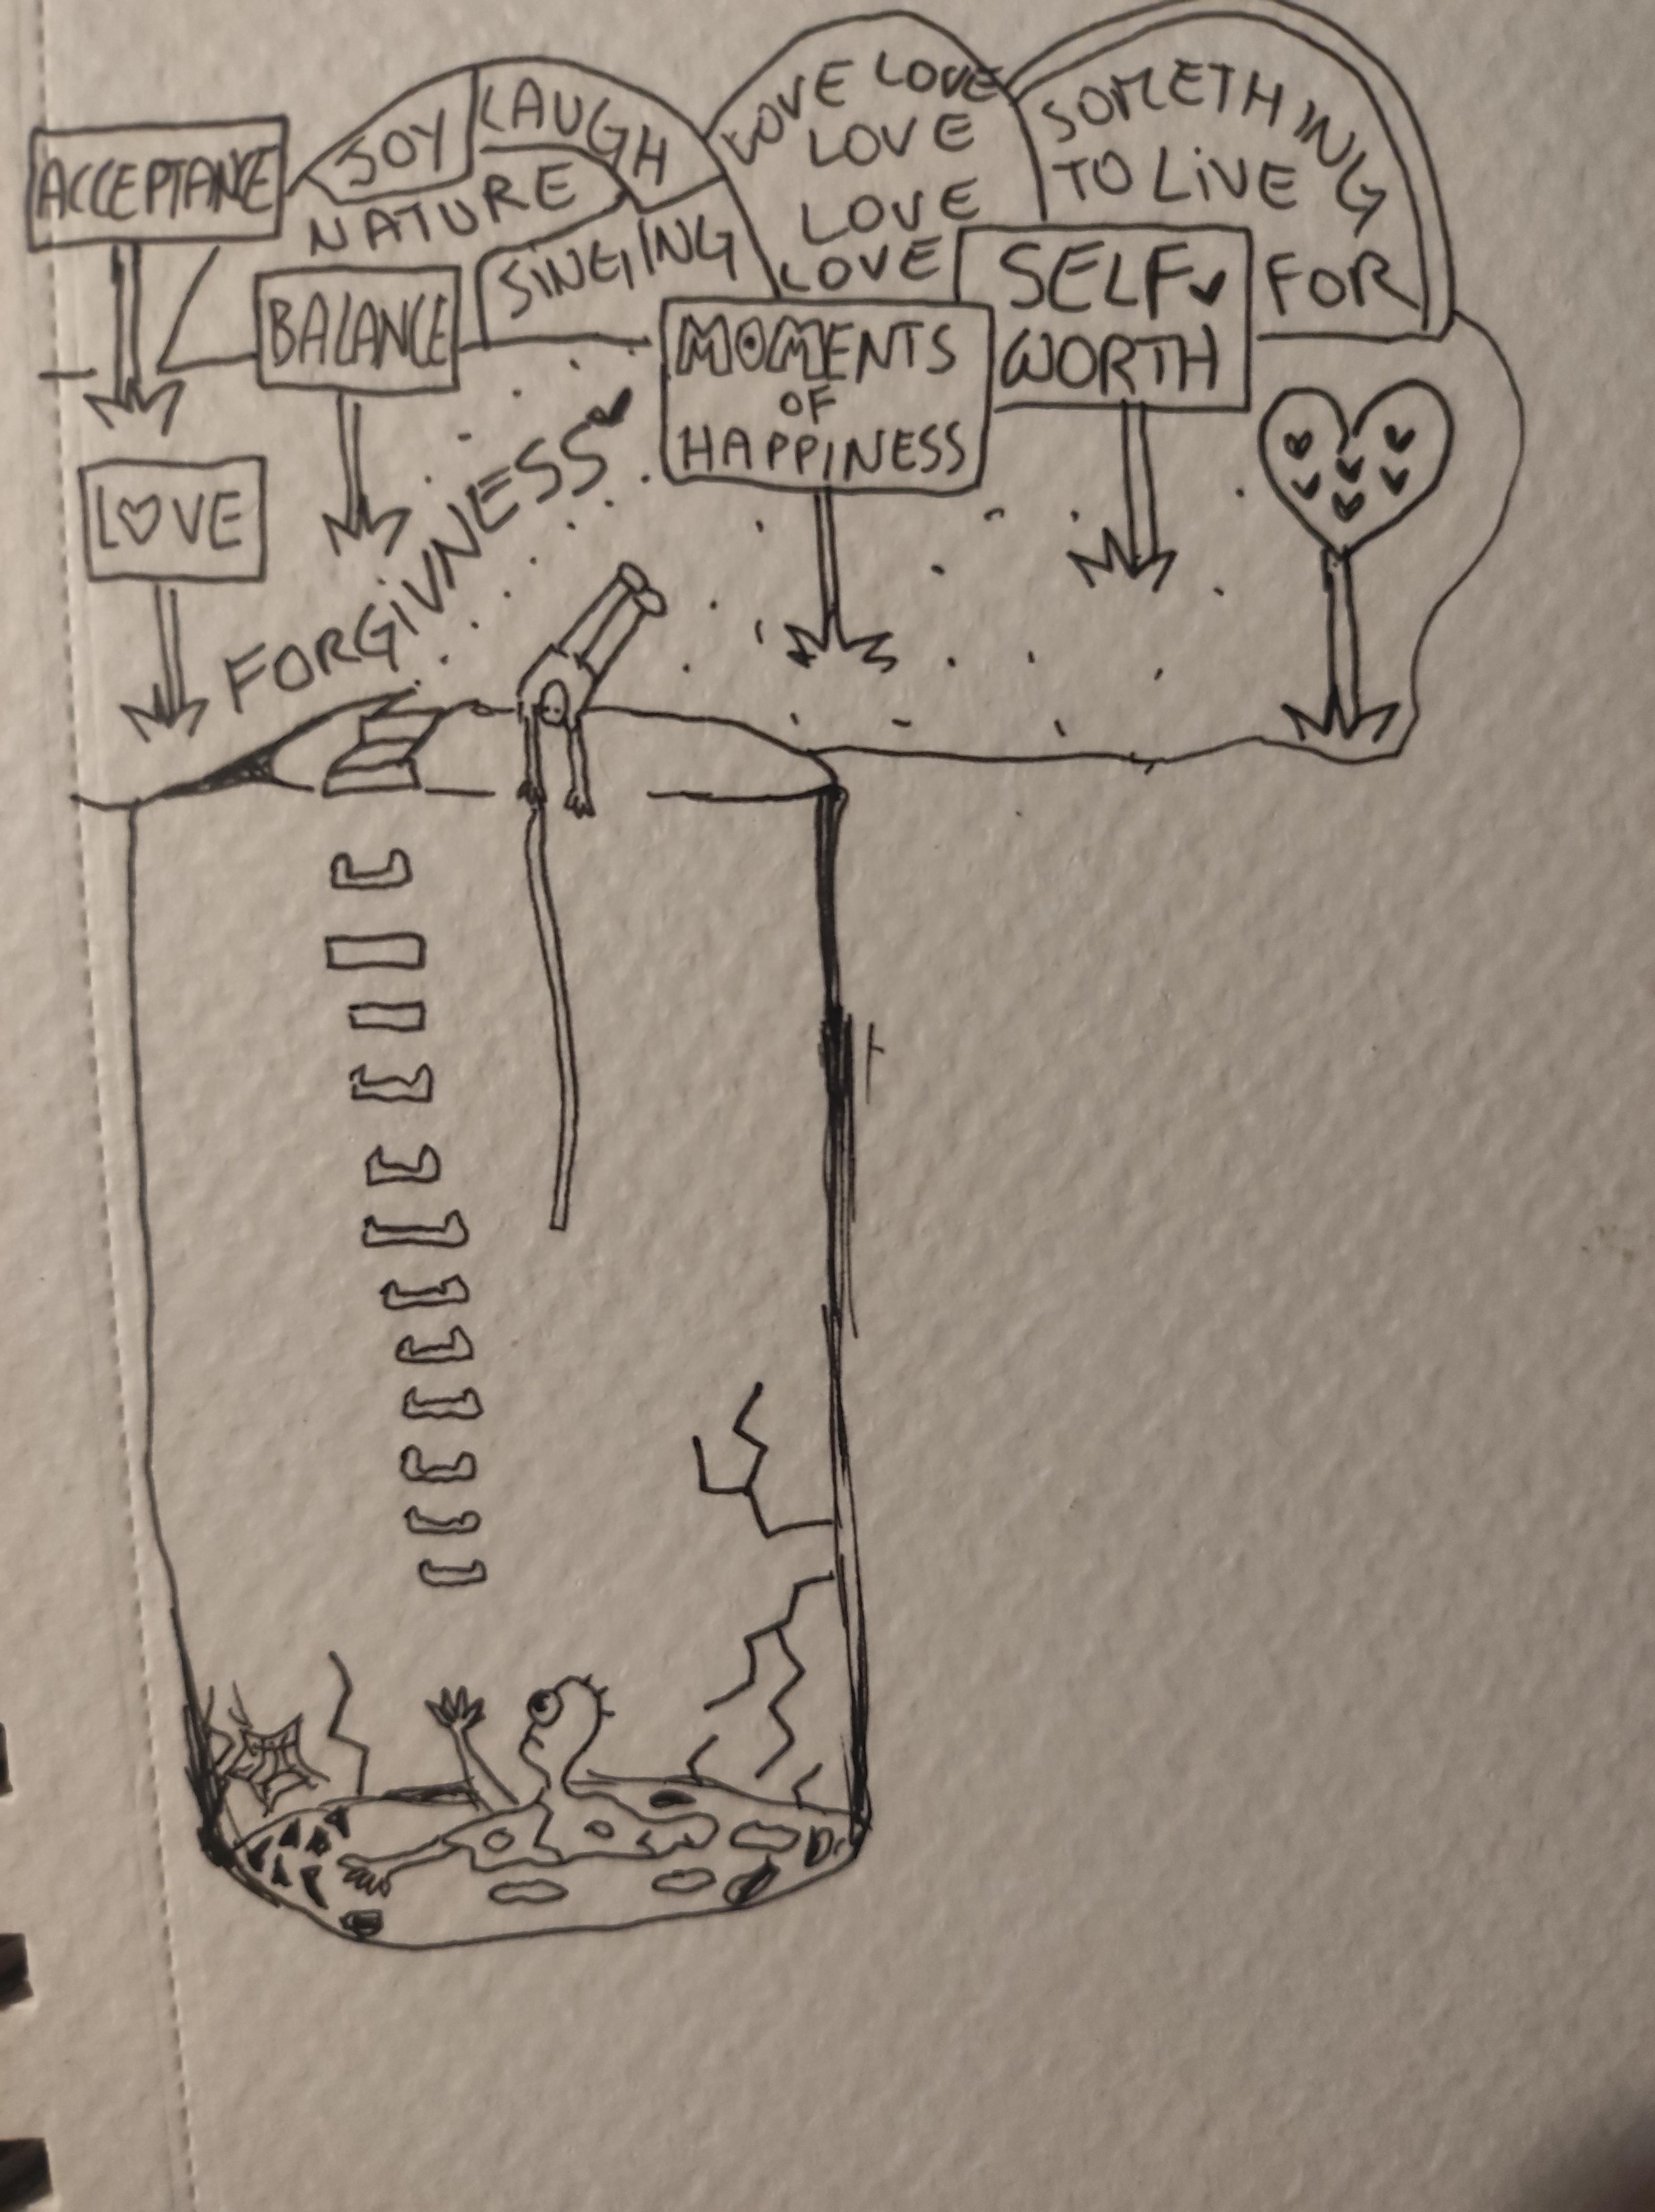 ACCEPTANCE
JOY
LAUGH
NATURE
SINGING
LOVE LOVE
LOVE
LOVE
LOVE
SOMETHING
TO LIVE
FOR
BALANCE
MOMENTS
OF
HAPPINESS
SELF
WORTH
LOVE
FORGIVNESS